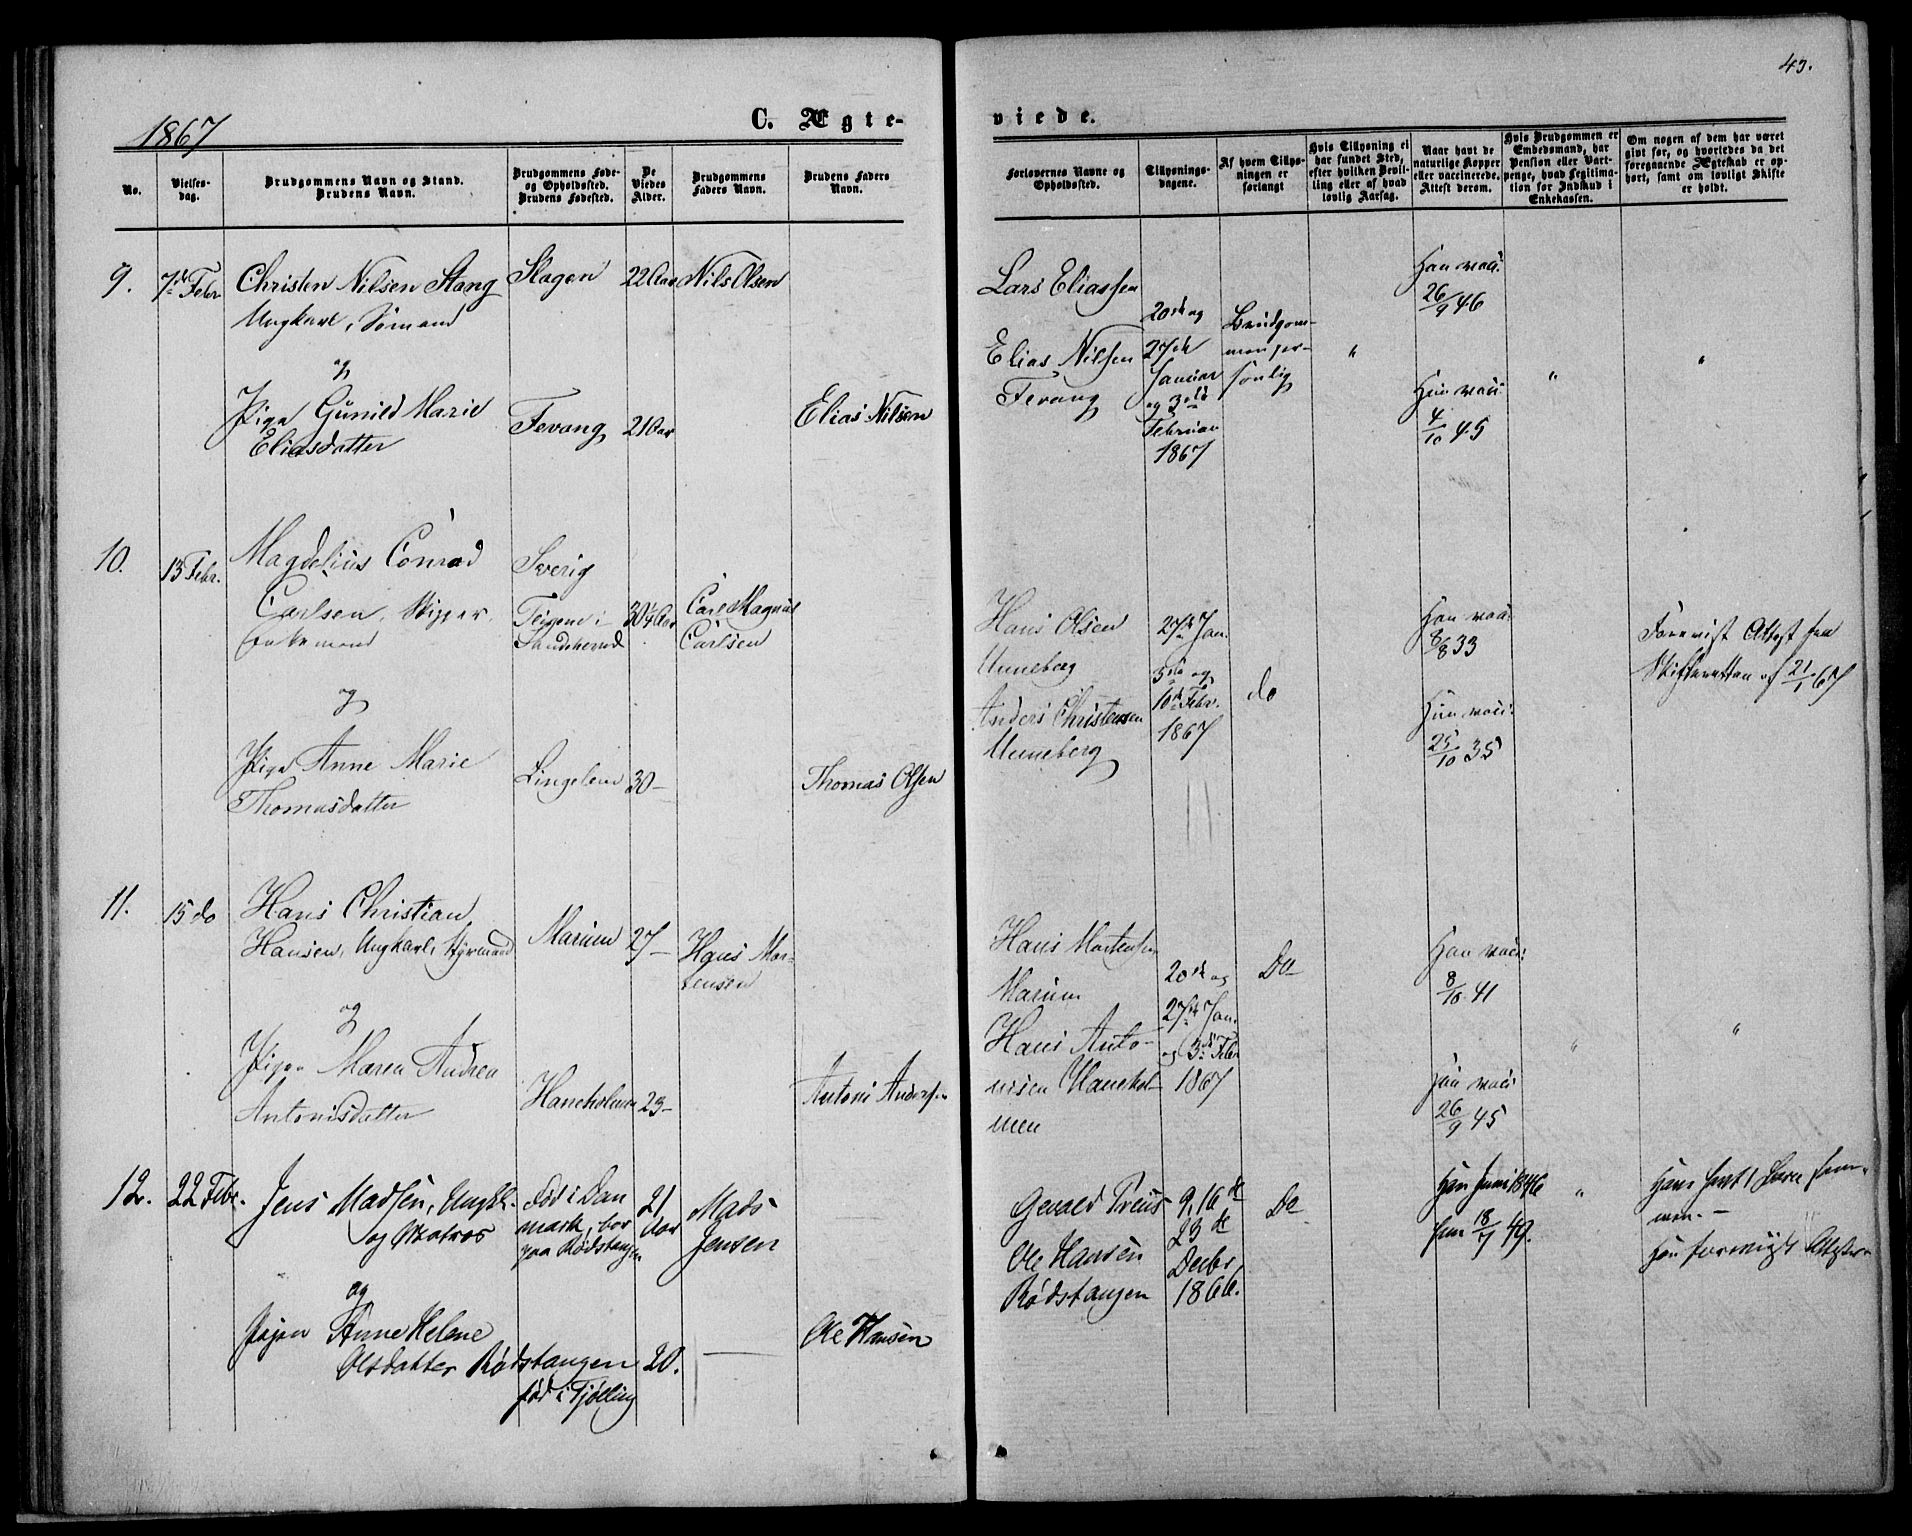 43.
1867
C. Ægte-
viede.
No.
Vielses-dag.
Brudgommens Navn og Stand.
Brudens Navn.
Brudgommens Føde- og Opholdssted.
Brudens Fødested.
De Viedes Alder.
Brudgommens Faders Navn.
Brudens Faders Navn.
Forlovernes Navne og Opholdssted.
Tillysnings-dagene.
Af hvem Tillysningen er forlangt
Hvis Tillysning ei har fundet Sted, efter hvilken Bevilling eller af hvad lovlig Aarsag.
Naar havt de naturlige Kopper eller vaccinerede. Attest derom.
Hvis Brudgommen er Embedsmand, har Pension eller Vartpenge, hvad Legitimation for Indskud i Enkekassen.
Om nogen af dem har været givt før, og hvorledes da det foregaaende Ægteskab er ophørt, samt om lovligt Skifte er holdt.
9. 7de Febr Christen Nilsen Stang Slagen 22 Aar Nils Olsen
Ungkarl, Sømand
og
Pige Gunild Marie Fevang 21 Aar Elias Nilsen
Eliasdatter
Lars Eliassen
Elias Nilsen
Fevang
20de og
27de
Januar
og 3die
Februar
1867
Brudgom-
men per-
sonlig
"
Han vacc:
26/9 46
Hun vacc:
4/10 45
"
"
10. 13 Febr. Magdelius Conrad Sverig
Carlsen, Skipper. Teigene i 30¼ Aar Carl Magnus
Enkemand Sandeherred Carlsen
og
Pige Anne Marie Lingelem 30 – Thomas Olsen
Thomasdatter
Hans Olsen
Unneberg
Anders Christensen
Unneberg
27de Jan.
3die og
10de Febr.
1867
do
Han vacc:
8/8 33
Hun vacc:
25/10 35
Forevist Attest fra
Skifteretten af 21/1 67
11. 15 do Hans Christian
Hansen, Ungkarl, Styrmand Marum 27 – Hans Mor-
tensen
og
Pige Maren Andrea
Antonisdatter Haneholmen 23 – Antoni Andersen
Hans Mortensen
Marum
Hans Anto-
nisen Hanehol-
men
20de og
27de Jan.
og 3die Febr
1867
Do
Han vacc:
8/10 41
Hun vacc:
26/9 45
"
"
12. 22 Febr. Jens Madsen, Ungk. Fød i Dan 21 Mads
og Matros mark, bor Aar Jensen
paa Rødstangen
og
Pigen Anne Helene Ole Hansen
Olsdatter Rødstangen 20.
fød i Tjølling
Gevald Preus
Ole Hansen
Rødstangen
9, 16de
23de
Decbr
1866.
Do
Han Juni 1846
hun 18/7 49.
"